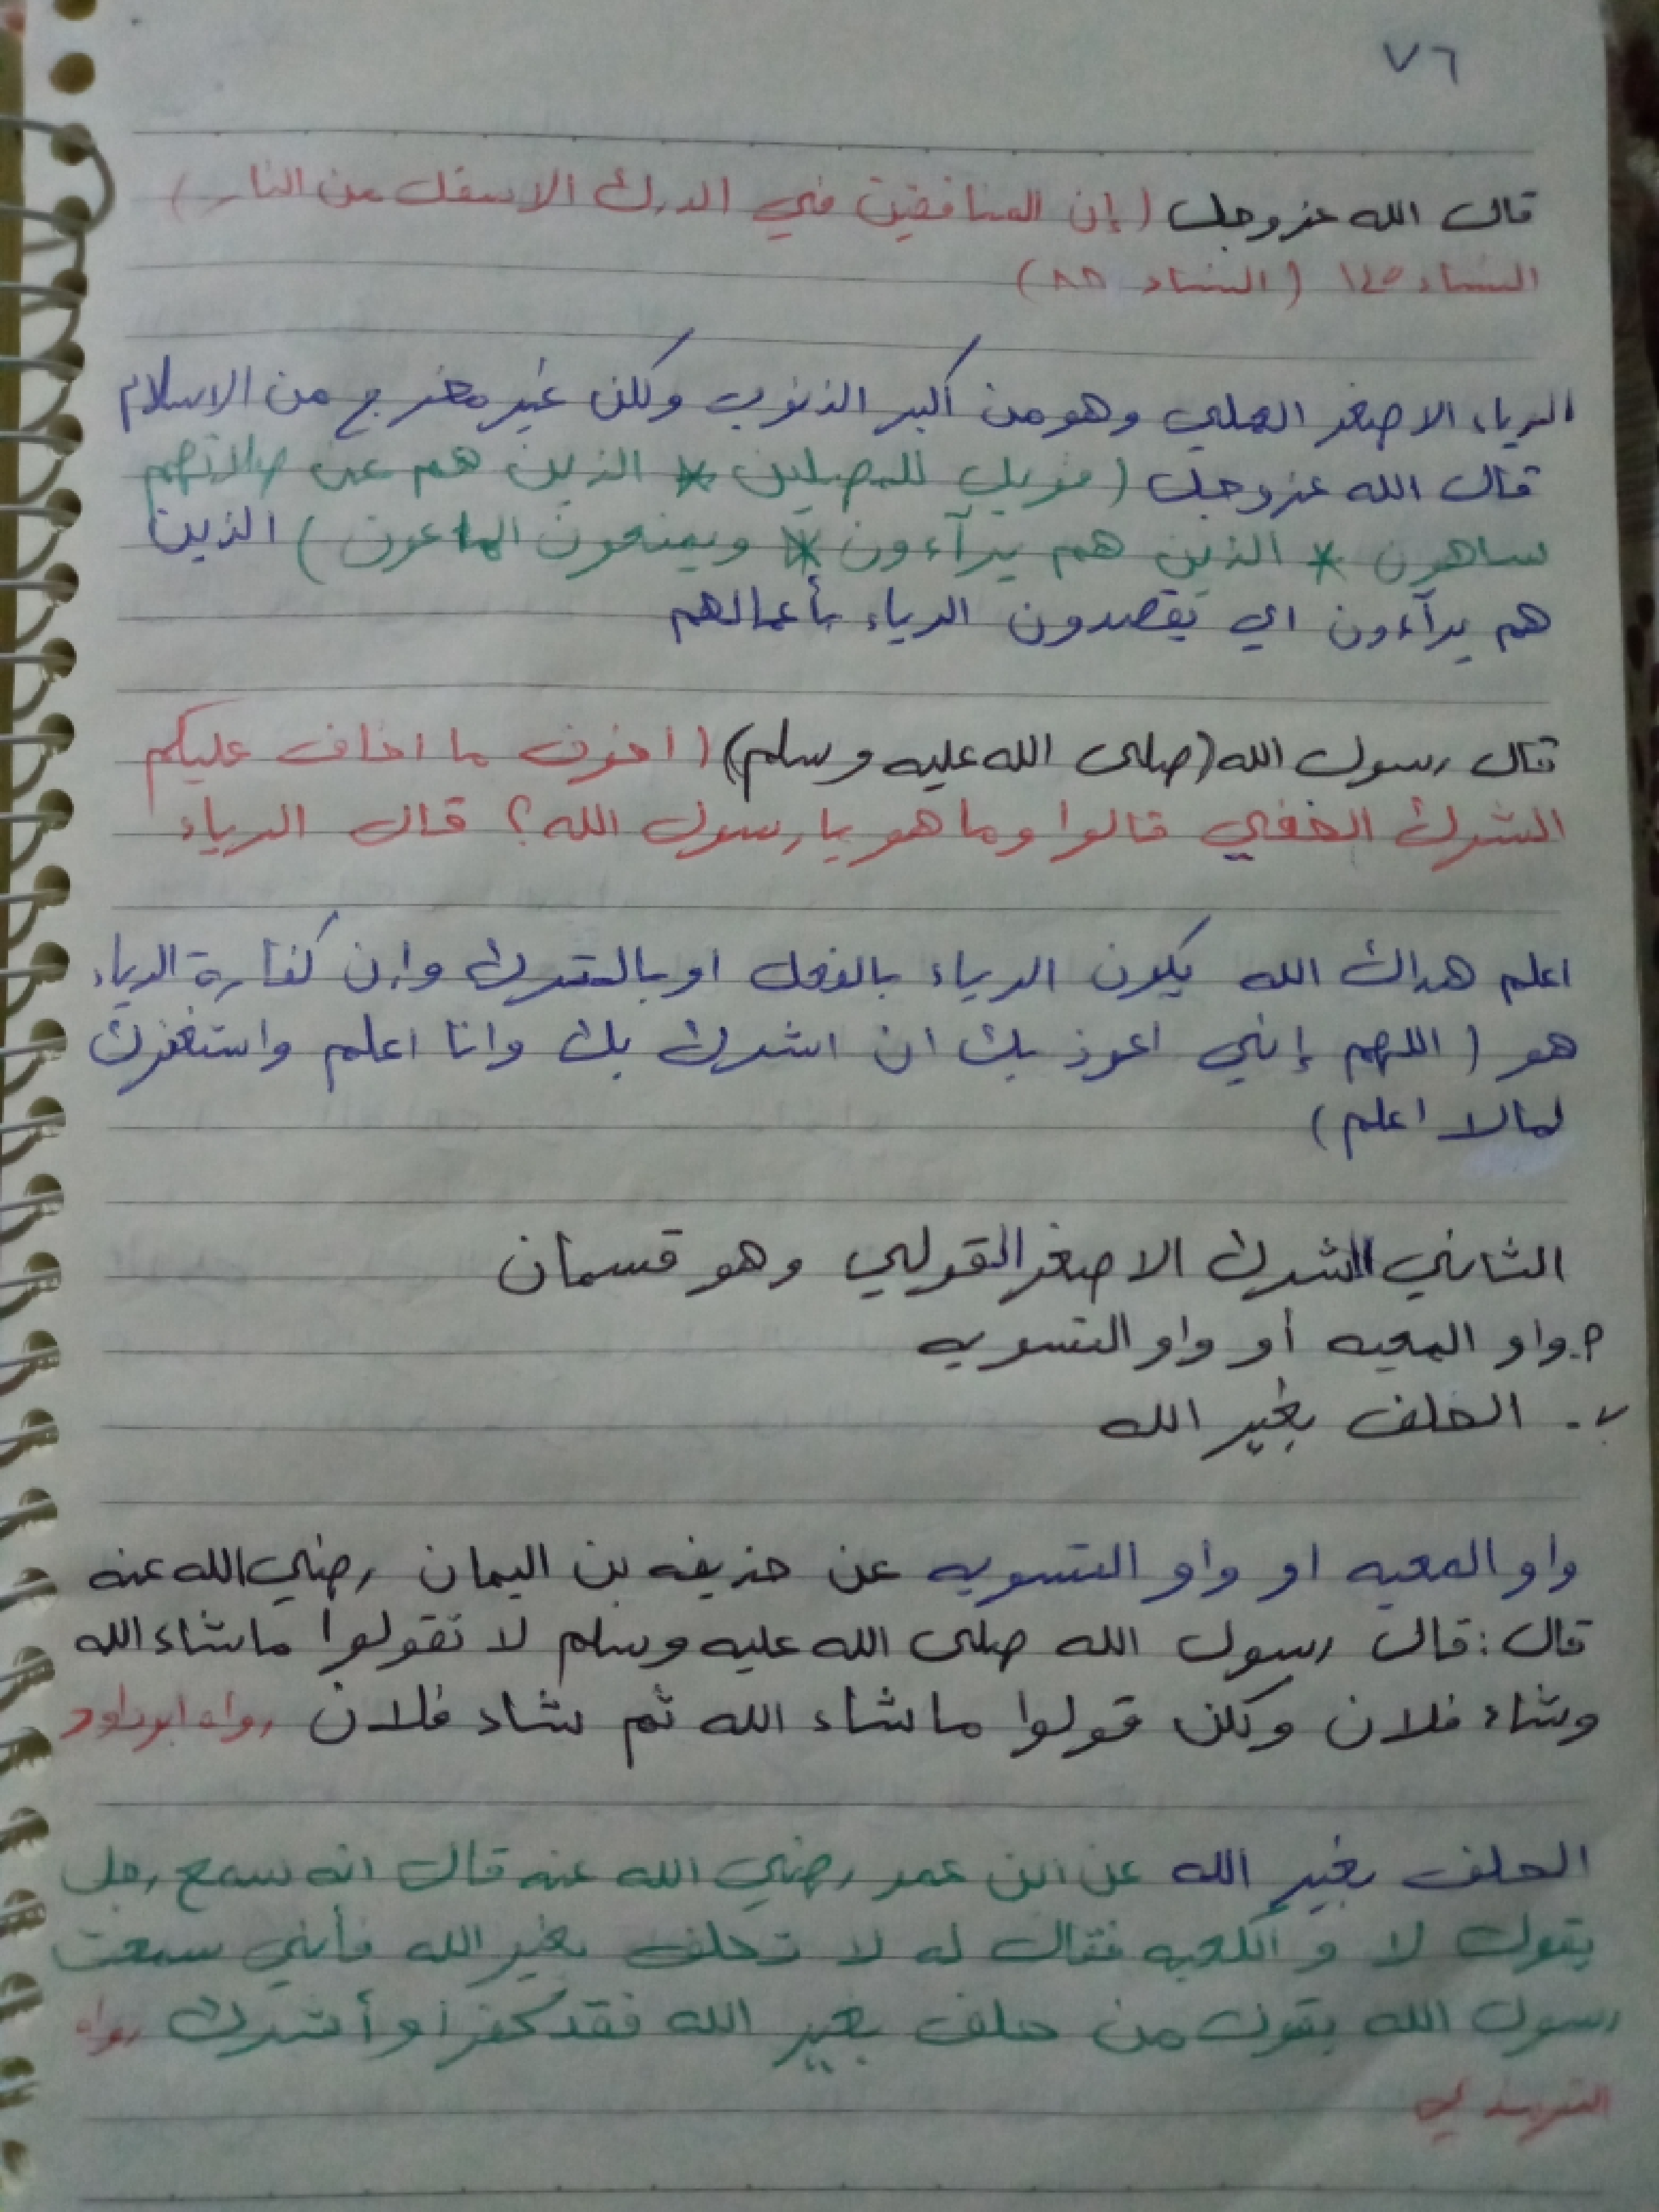 ٧٦
قال الله عز وجل (إن المنافقين في الدرك الاسفل من النار)
النساء ١٤٥ (النساء ٨٨)
الرياء الاصغر العملي وهو من أكبر الذنوب ولكن غير مخرج من الاسلام
قال الله عز وجل (فويل للمصلين * الذين هم عن صلاتهم
ساهون * الذين هم يرآءون * ويمنعون الماعون) الذين
هم يرآءون اي يقصدون الرياء بأعمالهم
قال رسول الله (صلى الله عليه وسلم) (اخوف ما اخاف عليكم
الشرك الخفي قالوا وما هو يا رسول الله؟ قال الرياء
اعلم هداك الله يكون الرياء بالفعل او بالترك وان كفارة الرياء
هو (اللهم إني اعوذ بك ان اشرك بك وانا اعلم واستغفرك
لما لا اعلم)
الثاني الشرك الاصغر القولي وهو قسمان
م. واو المعيه أو واو التسويه
ب. الحلف بغير الله
واو المعيه او واو التسويه عن حذيفه بن اليمان رضي الله عنه
قال: قال رسول الله صلى الله عليه وسلم لا تقولوا ماشاء الله
وشاء فلان ولكن قولوا ماشاء الله ثم شاء فلان رواه ابو داود
الحلف بغير الله عن ابن عمر رضي الله عنه قال انه سمع رجل
يقول لا و الكعبه فقال له لا تحلف بغير الله فأني سمعت
رسول الله يقول من حلف بغير الله فقد كفر او أشرك رواه
الترمذي